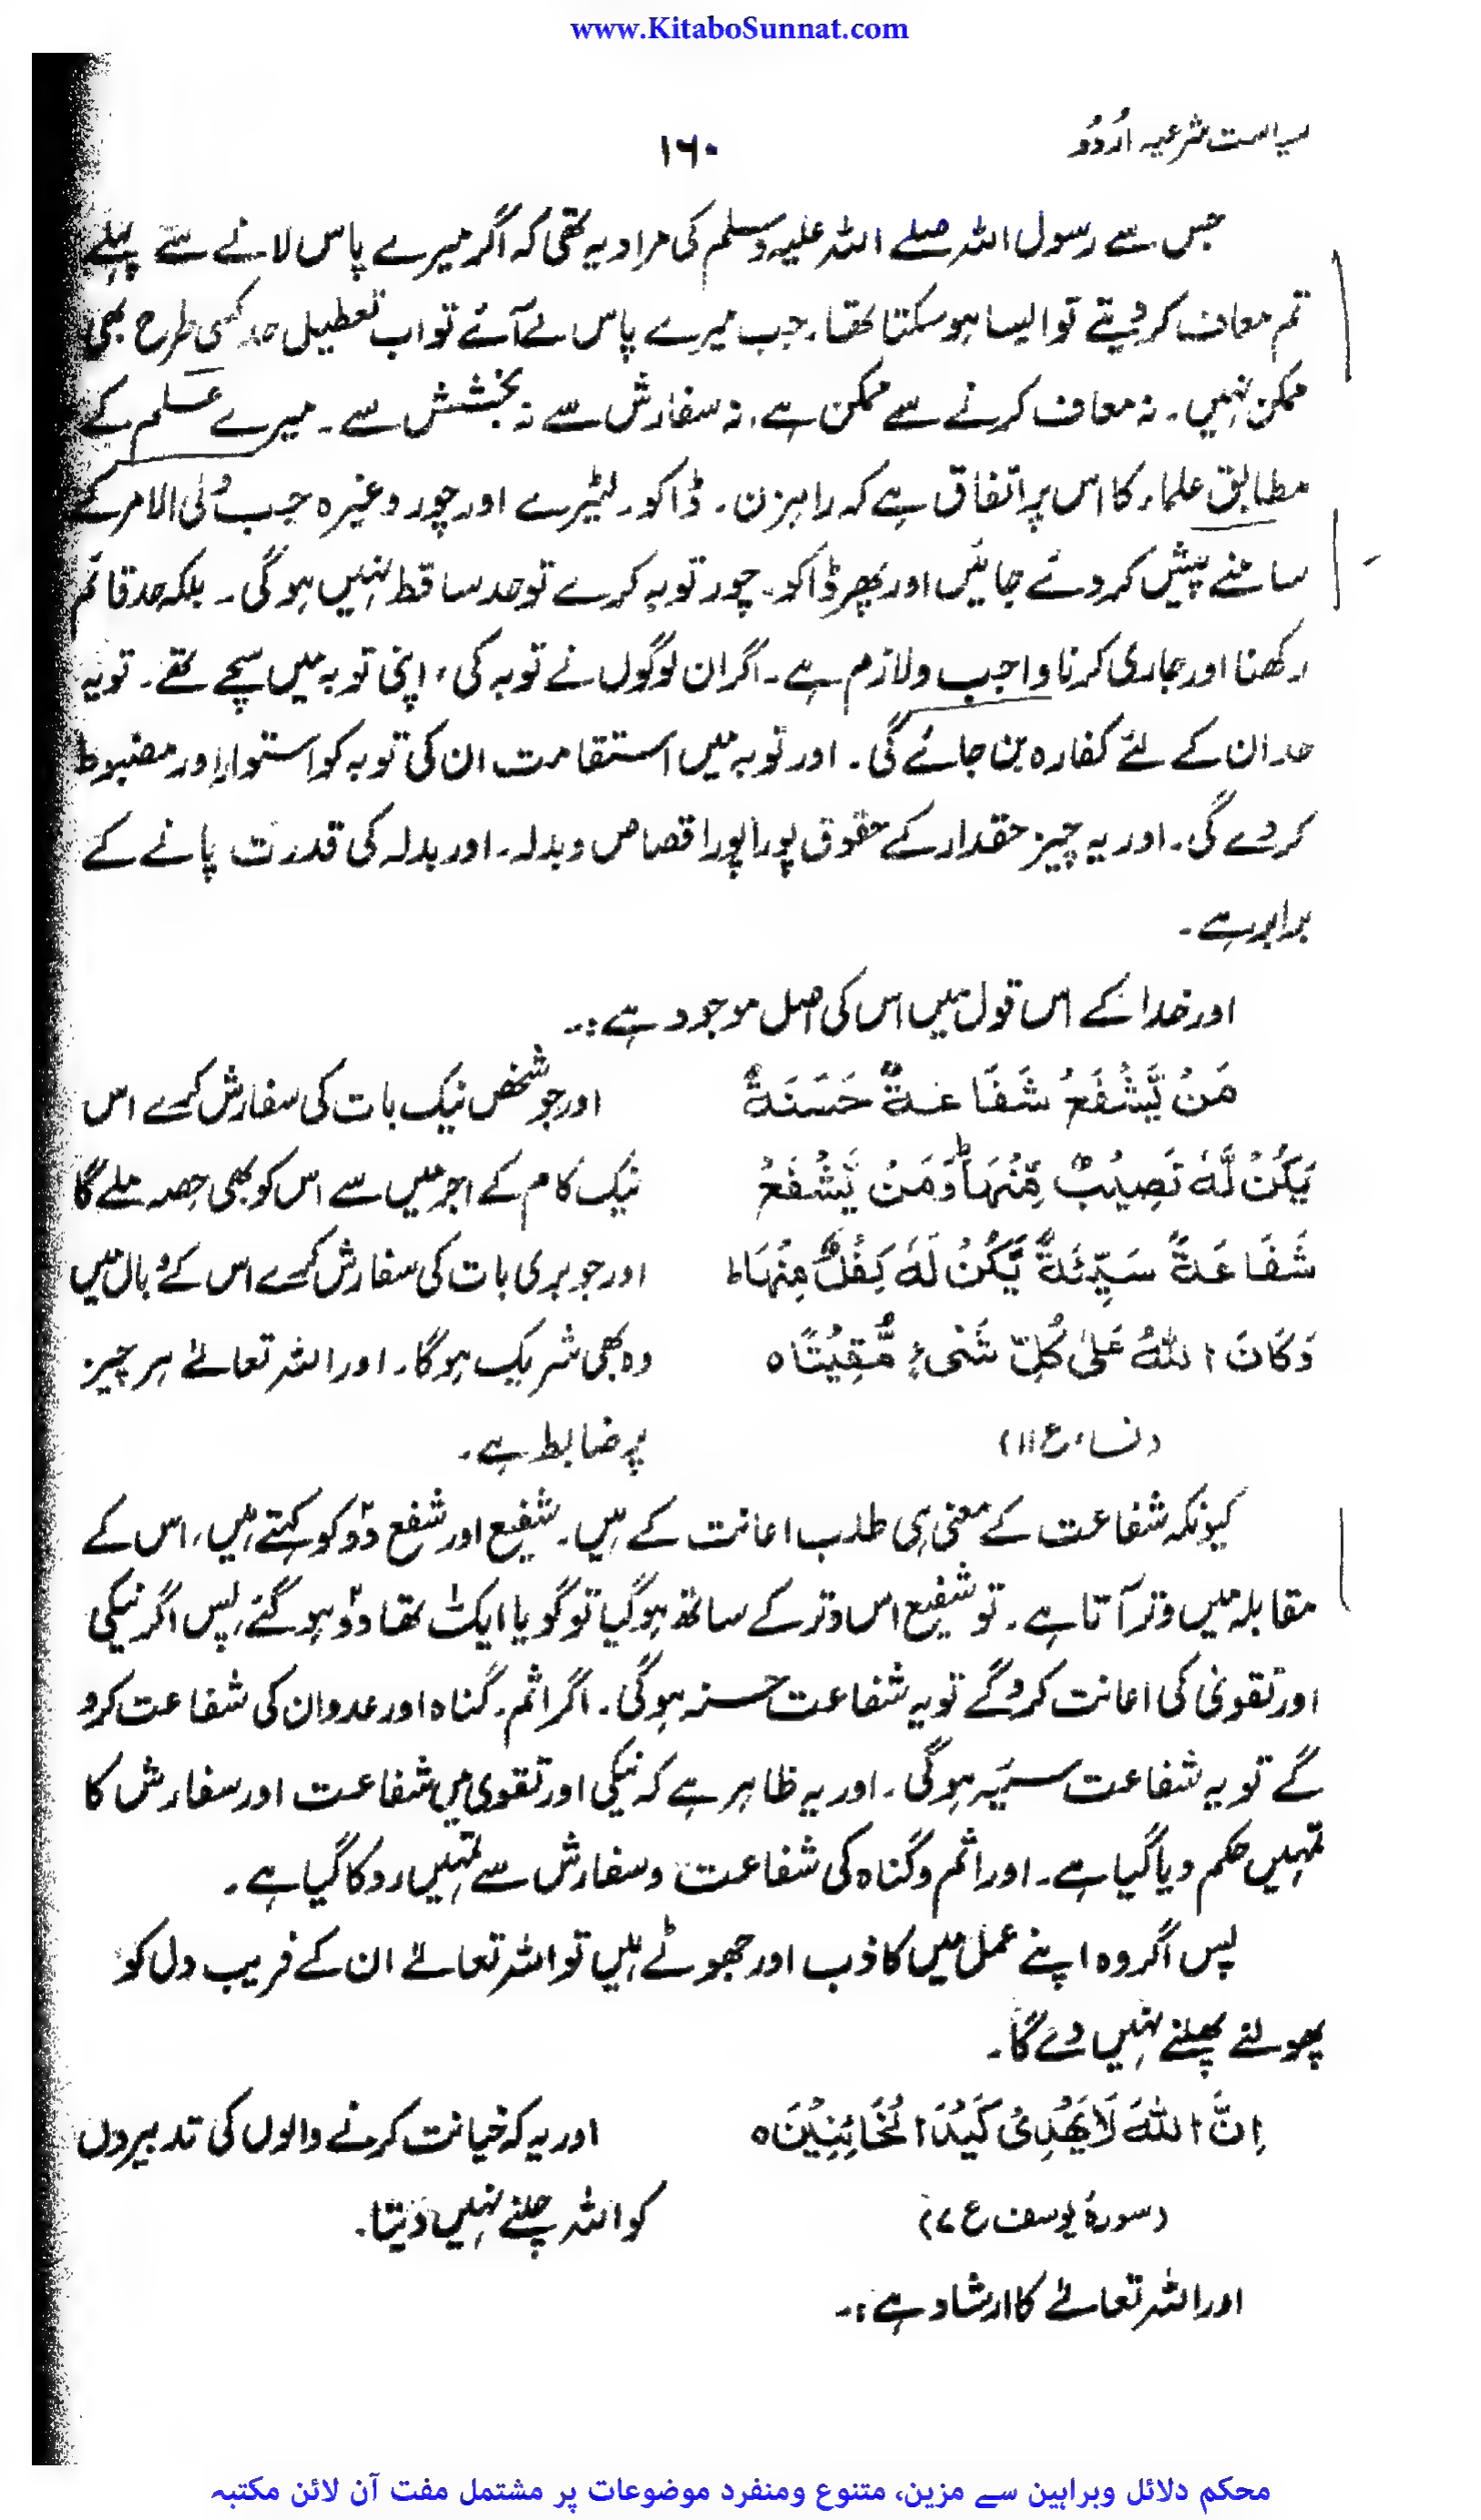 www.KitaboSunnat.com
سیاست شرعیہ اُردُو
۱۶۰
جس سے رسول اللہ صلے اللہ علیہ وسلم کی مراد یہ تھی کہ اگر میرے پاس لانے سے پہلے
تم معاف کر دیتے تو ایسا ہو سکتا تھا۔ جب میرے پاس لے آئے تو اب تعطیل حد کسی طرح بھی
ممکن نہیں۔ نہ معاف کرنے سے ممکن ہے، نہ سفارش سے نہ بخشش سے۔ میرے علم کے
مطابق علماء کا اس پر اتفاق ہے کہ راہزن۔ ڈاکو۔ لٹیرے اور چور وغیرہ جب ولی الامر کے
سامنے پیش کر دئے جائیں اور پھر ڈاکو۔ چور توبہ کرے تو حد ساقط نہیں ہوگی۔ بلکہ حد قائم
رکھنا اور جاری کرنا واجب ولازم ہے۔ اگر ان لوگوں نے توبہ کی، اپنی توبہ میں سچے تھے۔ تو یہ
حد ان کے لئے کفارہ بن جائے گی۔ اور توبہ میں استقامت ان کی توبہ کو استوار اور مضبوط
کر دے گی۔ اور یہ چیز حقدار کے حقوق پورا پورا قصاص و بدلہ۔ اور بدلہ کی قدرت پانے کے
برابر ہے۔
اور خدا کے اس قول میں اس کی اصل موجود ہے:۔
مَنْ يَّشْفَعْ شَفَاعَةً حَسَنَةً
يَكُنْ لَّهٗ نَصِيْبٌ مِّنْهَا ۚ وَمَنْ يَّشْفَعْ
شَفَاعَةً سَيِّئَةً يَّكُنْ لَّهٗ كِفْلٌ مِّنْهَا ط
وَكَانَ اللّٰهُ عَلٰى كُلِّ شَىْءٍ مُّقِيْتًا ه
(نساء ع ۱۱)
اور جو شخص نیک بات کی سفارش کرے اس
نیک کام کے اجر میں سے اس کو بھی حصہ ملے گا
اور جو بری بات کی سفارش کرے اس کے وبال میں
وہ بھی شریک ہوگا۔ اور اللہ تعالےٰ ہر چیز
پر ضابط ہے۔
کیونکہ شفاعت کے معنی ہی طلب اعانت کے ہیں۔ شفیع اور شفع دو کو کہتے ہیں، اس کے
مقابلہ میں وتر آتا ہے۔ تو شفیع اس وتر کے ساتھ ہو گیا تو گویا ایک تھا دو ہو گئے، پس اگر نیکی
اور تقویٰ کی اعانت کرو گے تو یہ شفاعت حسنہ ہوگی۔ اگر اثم۔ گناہ اور عدوان کی شفاعت کرو
گے تو یہ شفاعت سیئہ ہوگی۔ اور یہ ظاہر ہے کہ نیکی اور تقوی میں شفاعت اور سفارش کا
تمہیں حکم دیا گیا ہے۔ اور اثم وگناہ کی شفاعت وسفارش سے تمہیں روکا گیا ہے۔
پس اگر وہ اپنے عمل میں کاذب اور جھوٹے ہیں تو اللہ تعالےٰ ان کے فریب دل کو
پھولنے پھلنے نہیں دے گا۔
اِنَّ اللّٰهَ لَا يَهْدِىْ كَيْدَ الْخَائِنِيْنَ ه
(سورۂ یوسف ع ۷)
اور یہ کہ خیانت کرنے والوں کی تدبیروں
کو اللہ چلنے نہیں دیتا۔
اور اللہ تعالےٰ کا ارشاد ہے:۔
محکم دلائل وبراہین سے مزین، متنوع ومنفرد موضوعات پر مشتمل مفت آن لائن مکتبہ